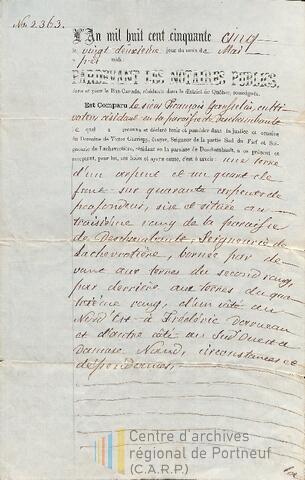 No. 2363.
L'An mil huit cent cinquante cinq
le vingt deuxième jour du mois de Mai
midi.
PARDEVANT LES NOTAIRES PUBLICS,
dans et pour le Bas-Canada, résidants dans le district de Québec, soussignés.
Est Comparu le sieur François cultivateur
résidant en la paroisse de Deschambault
lequel a reconnu et déclaré tenir et posséder dans la justice et censive
du Domaine de Ecuyer, Seigneur de la partie Sud du Fief et Seigneurie
de Lachevrotière, résidant en la paroisse de Deschambault à ce présent et
acceptant, pour lui, ses hoirs et ayans cause, c'est à savoir: une terre
d'un arpent et un quart de
front sur quarante arpents de
profondeur, sise et située au
troisième rang de la paroisse
de Deschambault, Seigneurie de
Lachevrotière, bornée par devant
aux terres du second rang,
par derrière aux terres du quatrième
rang, d'un côté au
Nord Est à Frédéric
et d'autre côté au Sud Ouest à
Damase Naud, circonstances et
dépendances.
Centre d'archives
régional de Portneuf
(C.A.R.P.)